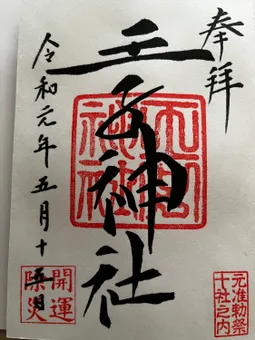 奉拝
王子神社
令和元年五月十五日
元准勅祭
十社之内
開運
除災